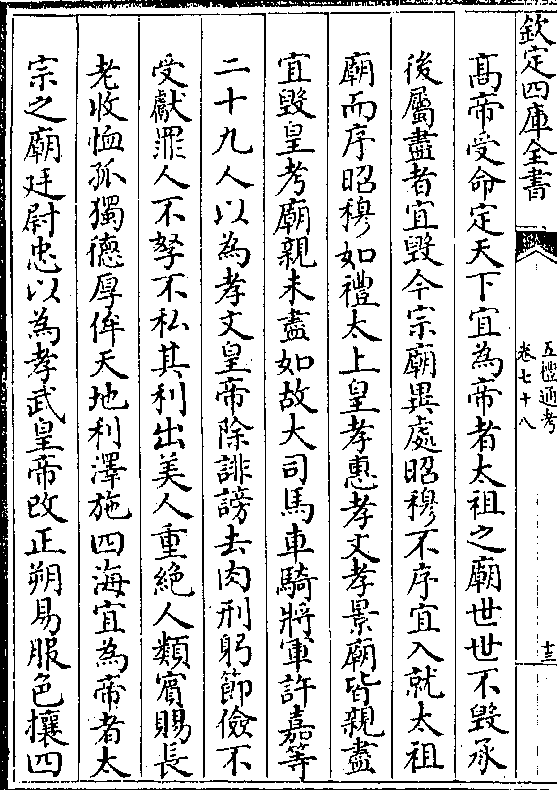 欽定四庫全書
五禮通考
卷七十八
十三
髙帝受命定天下宜為帝者太祖之廟世世不毁承
後屬盡者宜毁今宗廟異處昭穆不序宜入就太祖
廟而序昭穆如禮太上皇孝惠孝文孝景廟皆親盡
宜毁皇考廟親未盡如故大司馬車騎將軍許嘉等
二十九人以為孝文皇帝除誹謗去肉刑躬節儉不
受獻罪人不孥不私其利出美人重絶人類賔賜長
老收恤孤獨德厚侔天地利澤施四海宜為帝者太
宗之廟廷尉忠以為孝武皇帝改正朔易服色攘四